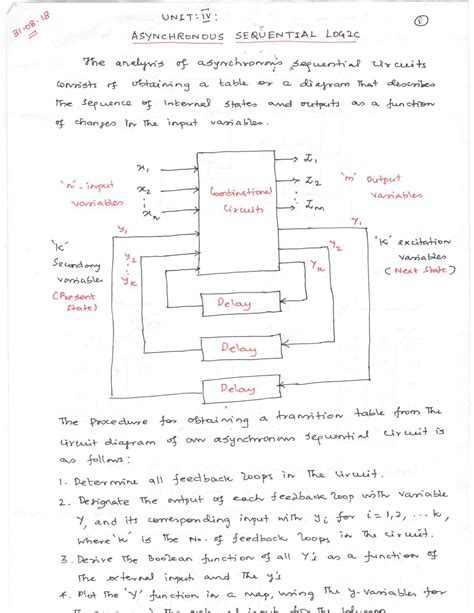 31-08-18
UNIT: IV:
1
ASYNCHRONOUS SEQUENTIAL LOGIC
The analysis of asynchronous sequential circuits
consists of obtaining a table or a diagram that describes
the sequence of internal states and outputs as a function
of changes in the input variables.
'n' - input
variables
x1
x2
xn
Combinational
Circuits
Z1
Z2
Zm
'm' output
variables
'K'
Secondary
variables
(Present
State)
y1
y2
yk
Y1
Y2
Yk
'K' excitation
variables
(Next State)
Delay
Delay
Delay
The procedure for obtaining a transition table from the
circuit diagram of an asynchronous sequential circuit is
as follows:
1. Determine all feedback loops in the circuit.
2. Designate the output of each feedback loop with variable
Yi and its corresponding input with yi for i=1,2, ... k,
where 'k' is the No. of feedback loops in the circuit.
3. Derive the Boolean function of all Y's as a function of
the external inputs and the y's
4. Plot the 'Y' function in a map, using the y-variables for